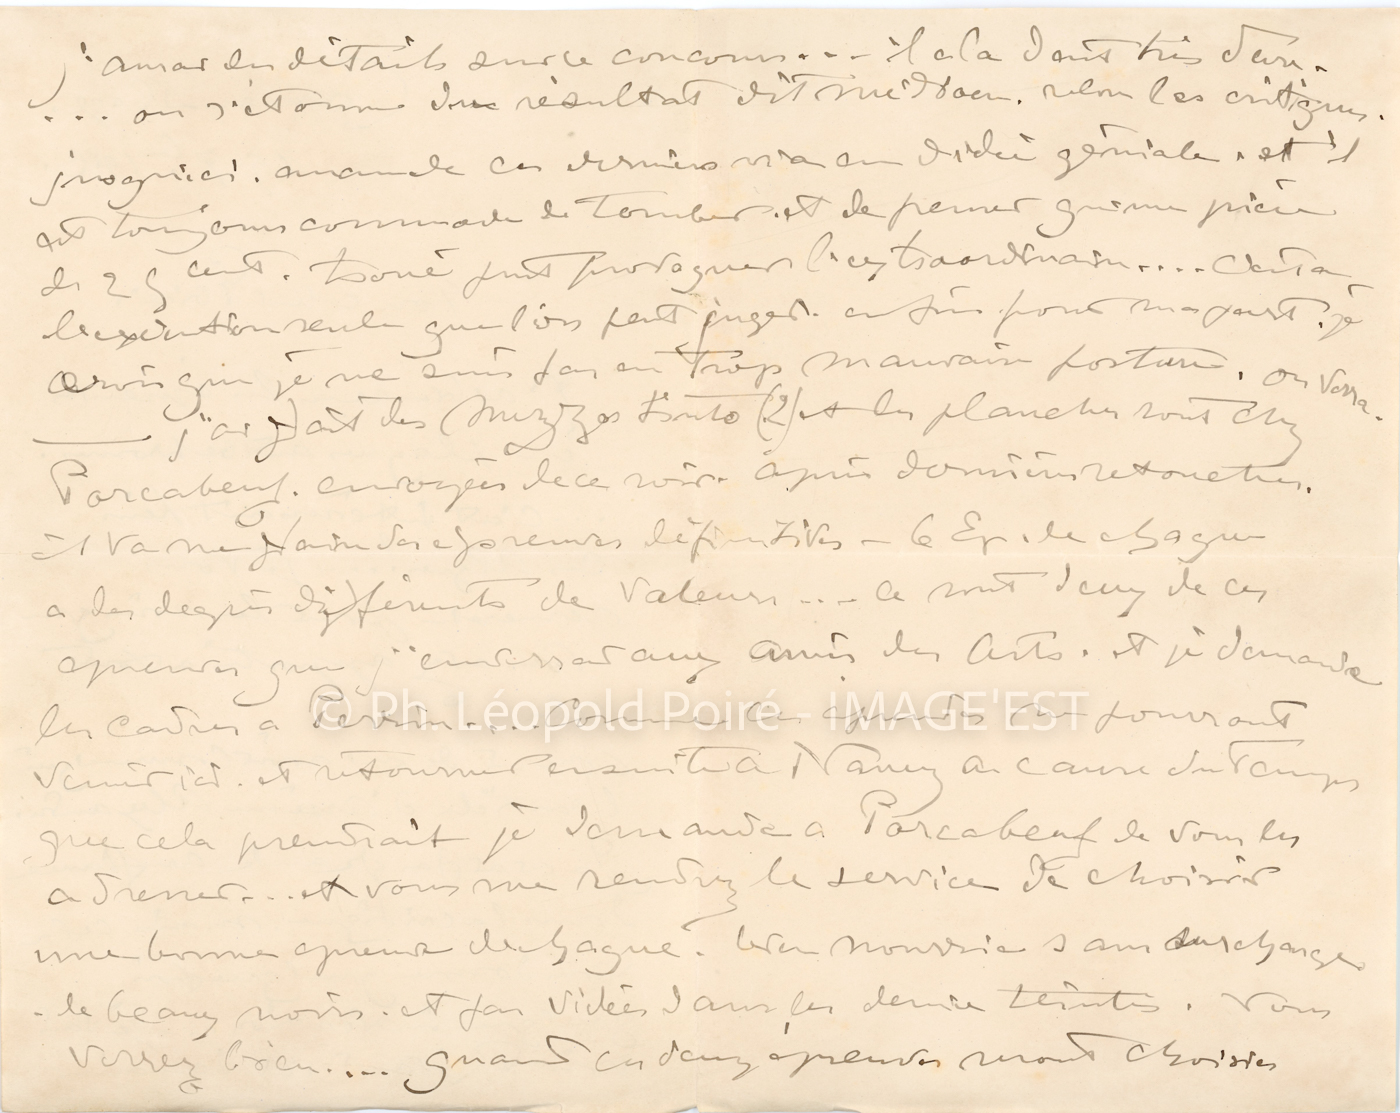 j'aurai des détails sur ce concours... il a la dent très dure.
... on s'étonne du résultat dit médiocre. selon les critiques.
jusqu'ici. aucun de ces derniers n'a eu d'idée géniale. et il
est toujours commode de tomber. et de prener qu'une pièce
de 25 cent. troué peut provoquer l'extraordinaire.... c'est a
l'exécution seule que l'on peut juger. enfin pour ma part. je
crois que je ne suis pas en trop mauvaise posture. on verra.
j'ai fait des mezzo tinto (2) et les planches sont chez
Porcabeuf. envoyées de ce soir. après dernières retouches.
il va me faire des epreuves définitives - 6 Ep. de chaque
a des degrés différents de valeurs.... ce sont deux de ces
epreuves que j'enverrai aux amis des Arts. et je demande
les cadres a Perrin.... Comme les epreuves ne pourront
venir ici. et retourner ensuite a Nancy a cause du temps
que cela prendrait je demande a Porcabeuf de vous les
adresser... et vous me rendrez le service de choisir
une bonne epreuve de chaque. bien nourrie sans surcharge
. de beaux noirs. et pas vidées dans les demie teintes. Vous
verrez bien.... quand ces deux epreuves seront choisies
© Ph. Léopold Poiré - IMAGE'EST